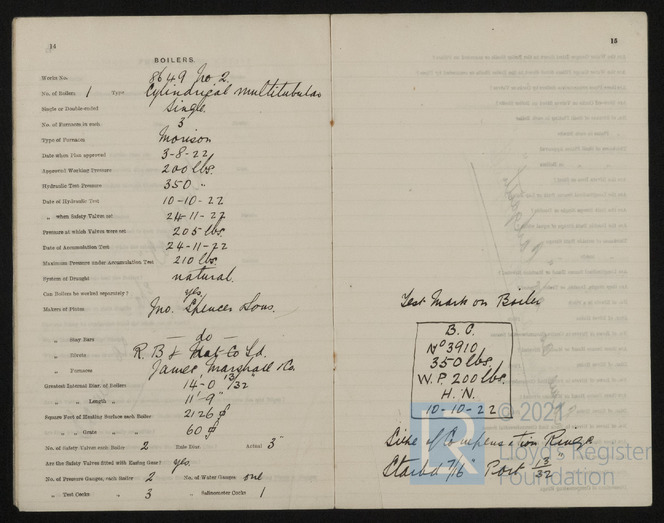 14
BOILERS.
Works No. 8649 No. 2.
No. of Boilers 1 Type Cylindrical multitubular
Single or Double-ended Single.
No. of Furnaces in each 3
Type of Furnaces Morison
Date when Plan approved 3-8-22
Approved Working Pressure 200 lbs.
Hydraulic Test Pressure 350 "
Date of Hydraulic Test 10-10-22
„ when Safety Valves set 24-11-22
Pressure at which Valves were set 205 lbs.
Date of Accumulation Test 24-11-22
Maximum Pressure under Accumulation Test 210 lbs.
System of Draught natural.
Can Boilers be worked separately? yes.
Makers of Plates Jno. Spencer & Sons.
„ Stay Bars — do —
„ Rivets R. B & Nat Co Ld.
„ Furnaces James Marshall & Co.
Greatest Internal Diam. of Boilers 14'-0 13/32"
„ „ Length „ 11'-9"
Square Feet of Heating Surface each Boiler 2126
„ „ Grate „ „ 60
No. of Safety Valves each Boiler 2 Rule Diam. Actual 3"
Are the Safety Valves fitted with Easing Gear? yes.
No. of Pressure Gauges, each Boiler 2 No. of Water Gauges one
„ Test Cocks „ 3 „ Salinometer Cocks 1
15
Test Mark on Boiler
B. C.
No 3910
350 lbs.
W.P. 200 lbs.
H. N.
10-10-22
of Compensation Rings
Starbd 7/16" Port 13/32"
© 2021
Lloyd's Register
Foundation